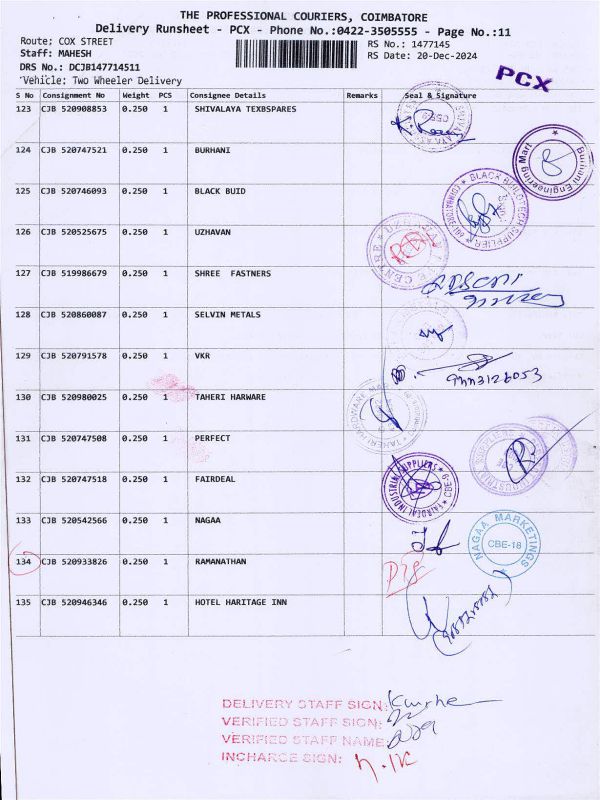 THE PROFESSIONAL COURIERS, COIMBATORE
Delivery Runsheet - PCX - Phone No.:0422-3505555 - Page No.:11
Route: COX STREET
RS No.: 1477145
Staff: MAHESH
RS Date: 20-Dec-2024
DRS No.: DCJB147714511
Vehicle: Two Wheeler Delivery
PCX
S No Consignment No Weight PCS Consignee Details Remarks Seal & Signature
123 CJB 520908853 0.250 1 SHIVALAYA TEXBSPARES
124 CJB 520747521 0.250 1 BURHANI
Burhani Engineering Mart
125 CJB 520746093 0.250 1 BLACK BUID
BLACK BUILDTECH SUPPLIER
126 CJB 520525675 0.250 1 UZHAVAN
127 CJB 519986679 0.250 1 SHREE FASTNERS
128 CJB 520860087 0.250 1 SELVIN METALS
129 CJB 520791578 0.250 1 VKR
130 CJB 520980025 0.250 1 TAHERI HARWARE
TAHERI HARDWARE MART
131 CJB 520747508 0.250 1 PERFECT
132 CJB 520747518 0.250 1 FAIRDEAL
FAIRDEAL INDUSTRIAL SUPPLIERS CBE-9
133 CJB 520542566 0.250 1 NAGAA
NAGAA MARKETINGS
CBE-18
134 CJB 520933826 0.250 1 RAMANATHAN
135 CJB 520946346 0.250 1 HOTEL HARITAGE INN
DELIVERY STAFF SIGN:
VERIFIED STAFF SIGN:
VERIFIED STAFF NAME:
INCHARGE SIGN: